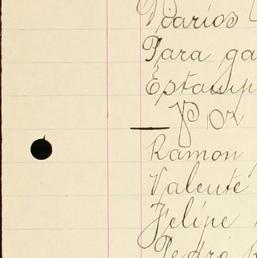 Varios
Para ga
Estamp
Por
Ramon
Valente
Felipe
Pedro